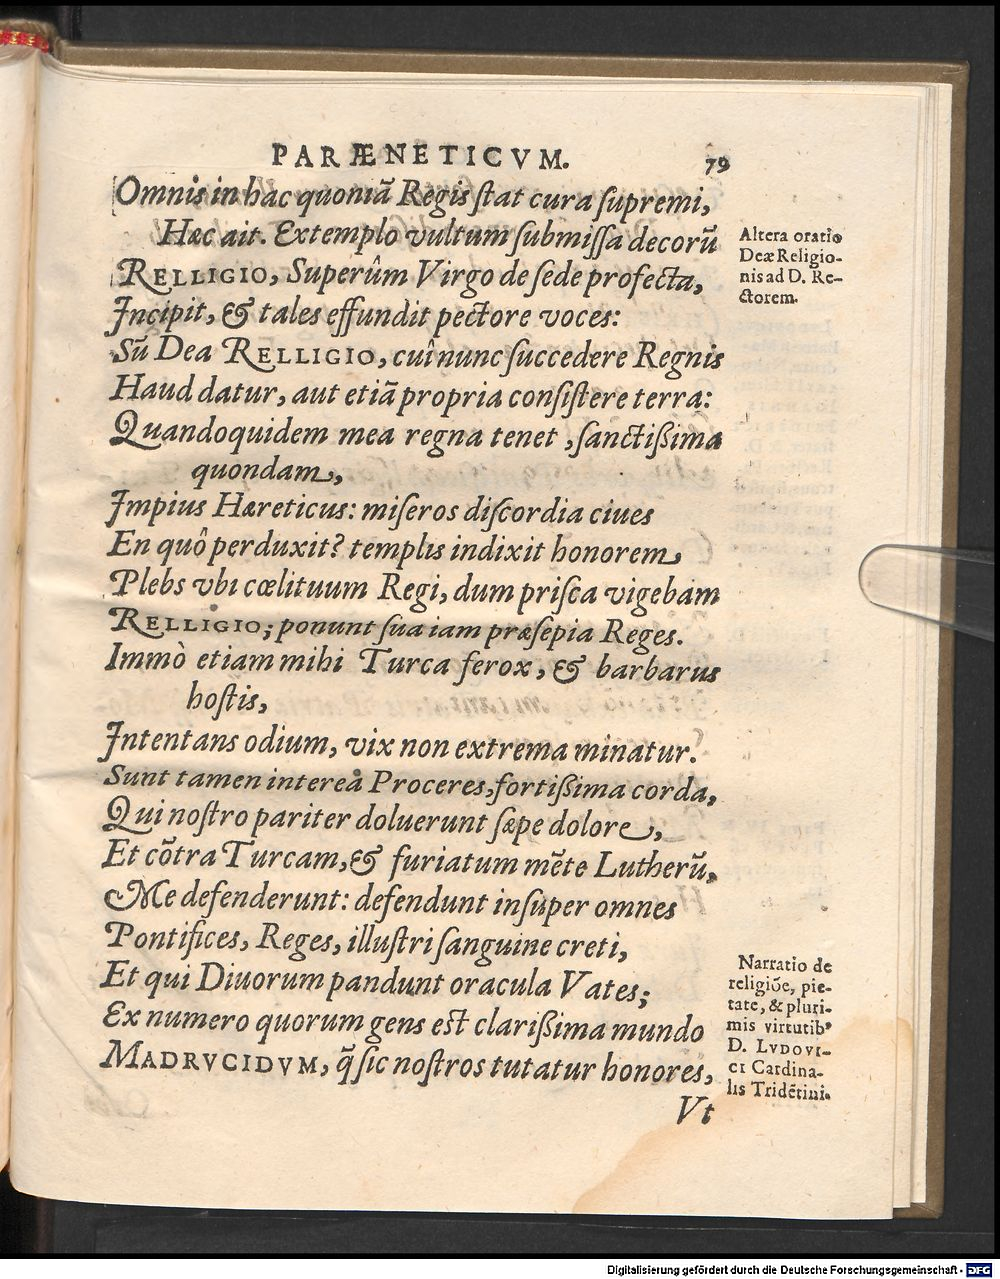 PARÆNETICVM. 79
Omnis in hac quoniã Regis ſtat cura ſupremi,
Hæc ait. Extemplo vultum ſubmiſſa decorũ
RELLIGIO, Superûm Virgo de ſede profecta,
Incipit, & tales effundit pectore voces:
Sũ Dea RELLIGIO, cuî nunc ſuccedere Regnis
Haud datur, aut etiã propria conſiſtere terra:
Quandoquidem mea regna tenet, ſanctißima
quondam,
Impius Hæreticus: miſeros diſcordia ciues
En quô perduxit? templis indixit honorem
Plebs vbi cœlituum Regi, dum priſca vigebam
RELLIGIO; ponunt ſua iam præſepia Reges.
Immò etiam mihi Turca ferox, & barbarus
hoſtis,
Intentans odium, vix non extrema minatur.
Sunt tamen intereà Proceres, fortißima corda,
Qui noſtro pariter doluerunt ſæpe dolore,
Et cõtra Turcam, & furiatum mẽte Lutherũ,
Me defenderunt: defendunt inſuper omnes
Pontifices, Reges, illuſtri ſanguine creti,
Et qui Diuorum pandunt oracula Vates;
Ex numero quorum gens eſt clarißima mundo
MADRVCIDVM, q̃ ſic noſtros tutatur honores,
Vt
Altera oratio
Deæ Religio-
nis ad D. Re-
ctorem.
Narratio de
religiõe, pie-
tate, & pluri-
mis virtutib⁹
D. LVDOVI-
CI Cardina-
lis Tridẽtini.
Digitalisierung gefördert durch die Deutsche Forschungsgemeinschaft - DFG